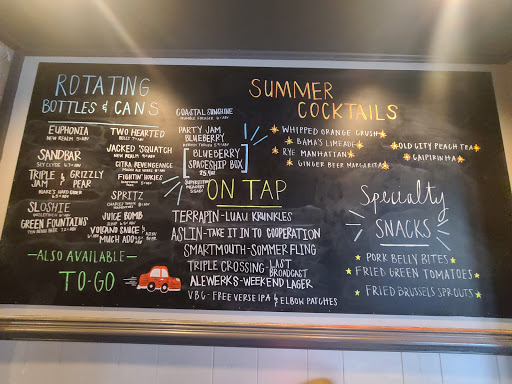 ROTATING
BOTTLES & CANS
EUPHONIA
NEW REALM
SANDBAR
TRIPLE & GRIZZLY
JAM PEAR
SLOSHIE
GREEN FOUNTAINS
TWO HEARTED
JACKED 'SQUATCH
NEW REALM
CITRA REVENGEANCE
FIGHTIN' WKIES
SPRITZ
JUICE BOMB
VOLCANO SAUCE &
MUCH ADO
—ALSO AVAILABLE—
TO-GO
COASTAL SUNSHINE
PARTY JAM
BLUEBERRY
BLUEBERRY
SPACESHIP BOX
SUPERSTITION MEADERY
ON TAP
TERRAPIN-LUAU KRUNKLES
ASLIN-TAKE IT IN TO COOPERATION
SMARTMOUTH-SOMMER FLING
TRIPLE CROSSING-LAST BROADCAST
ALEWERKS-WEEKEND LAGER
VBC-FREE VERSE IPA & ELBOW PATCHES
SUMMER
COCKTAILS
WHIPPED ORANGE CRUSH
BAMA'S LIMEADE
RYE MANHATTAN
GINGER BEER MARGARITA
OLD CITY PEACH TEA
CAIPIRINHA
Specialty
SNACKS
PORK BELLY BITES
FRIED GREEN TOMATOES
FRIED BRUSSELS SPROUTS